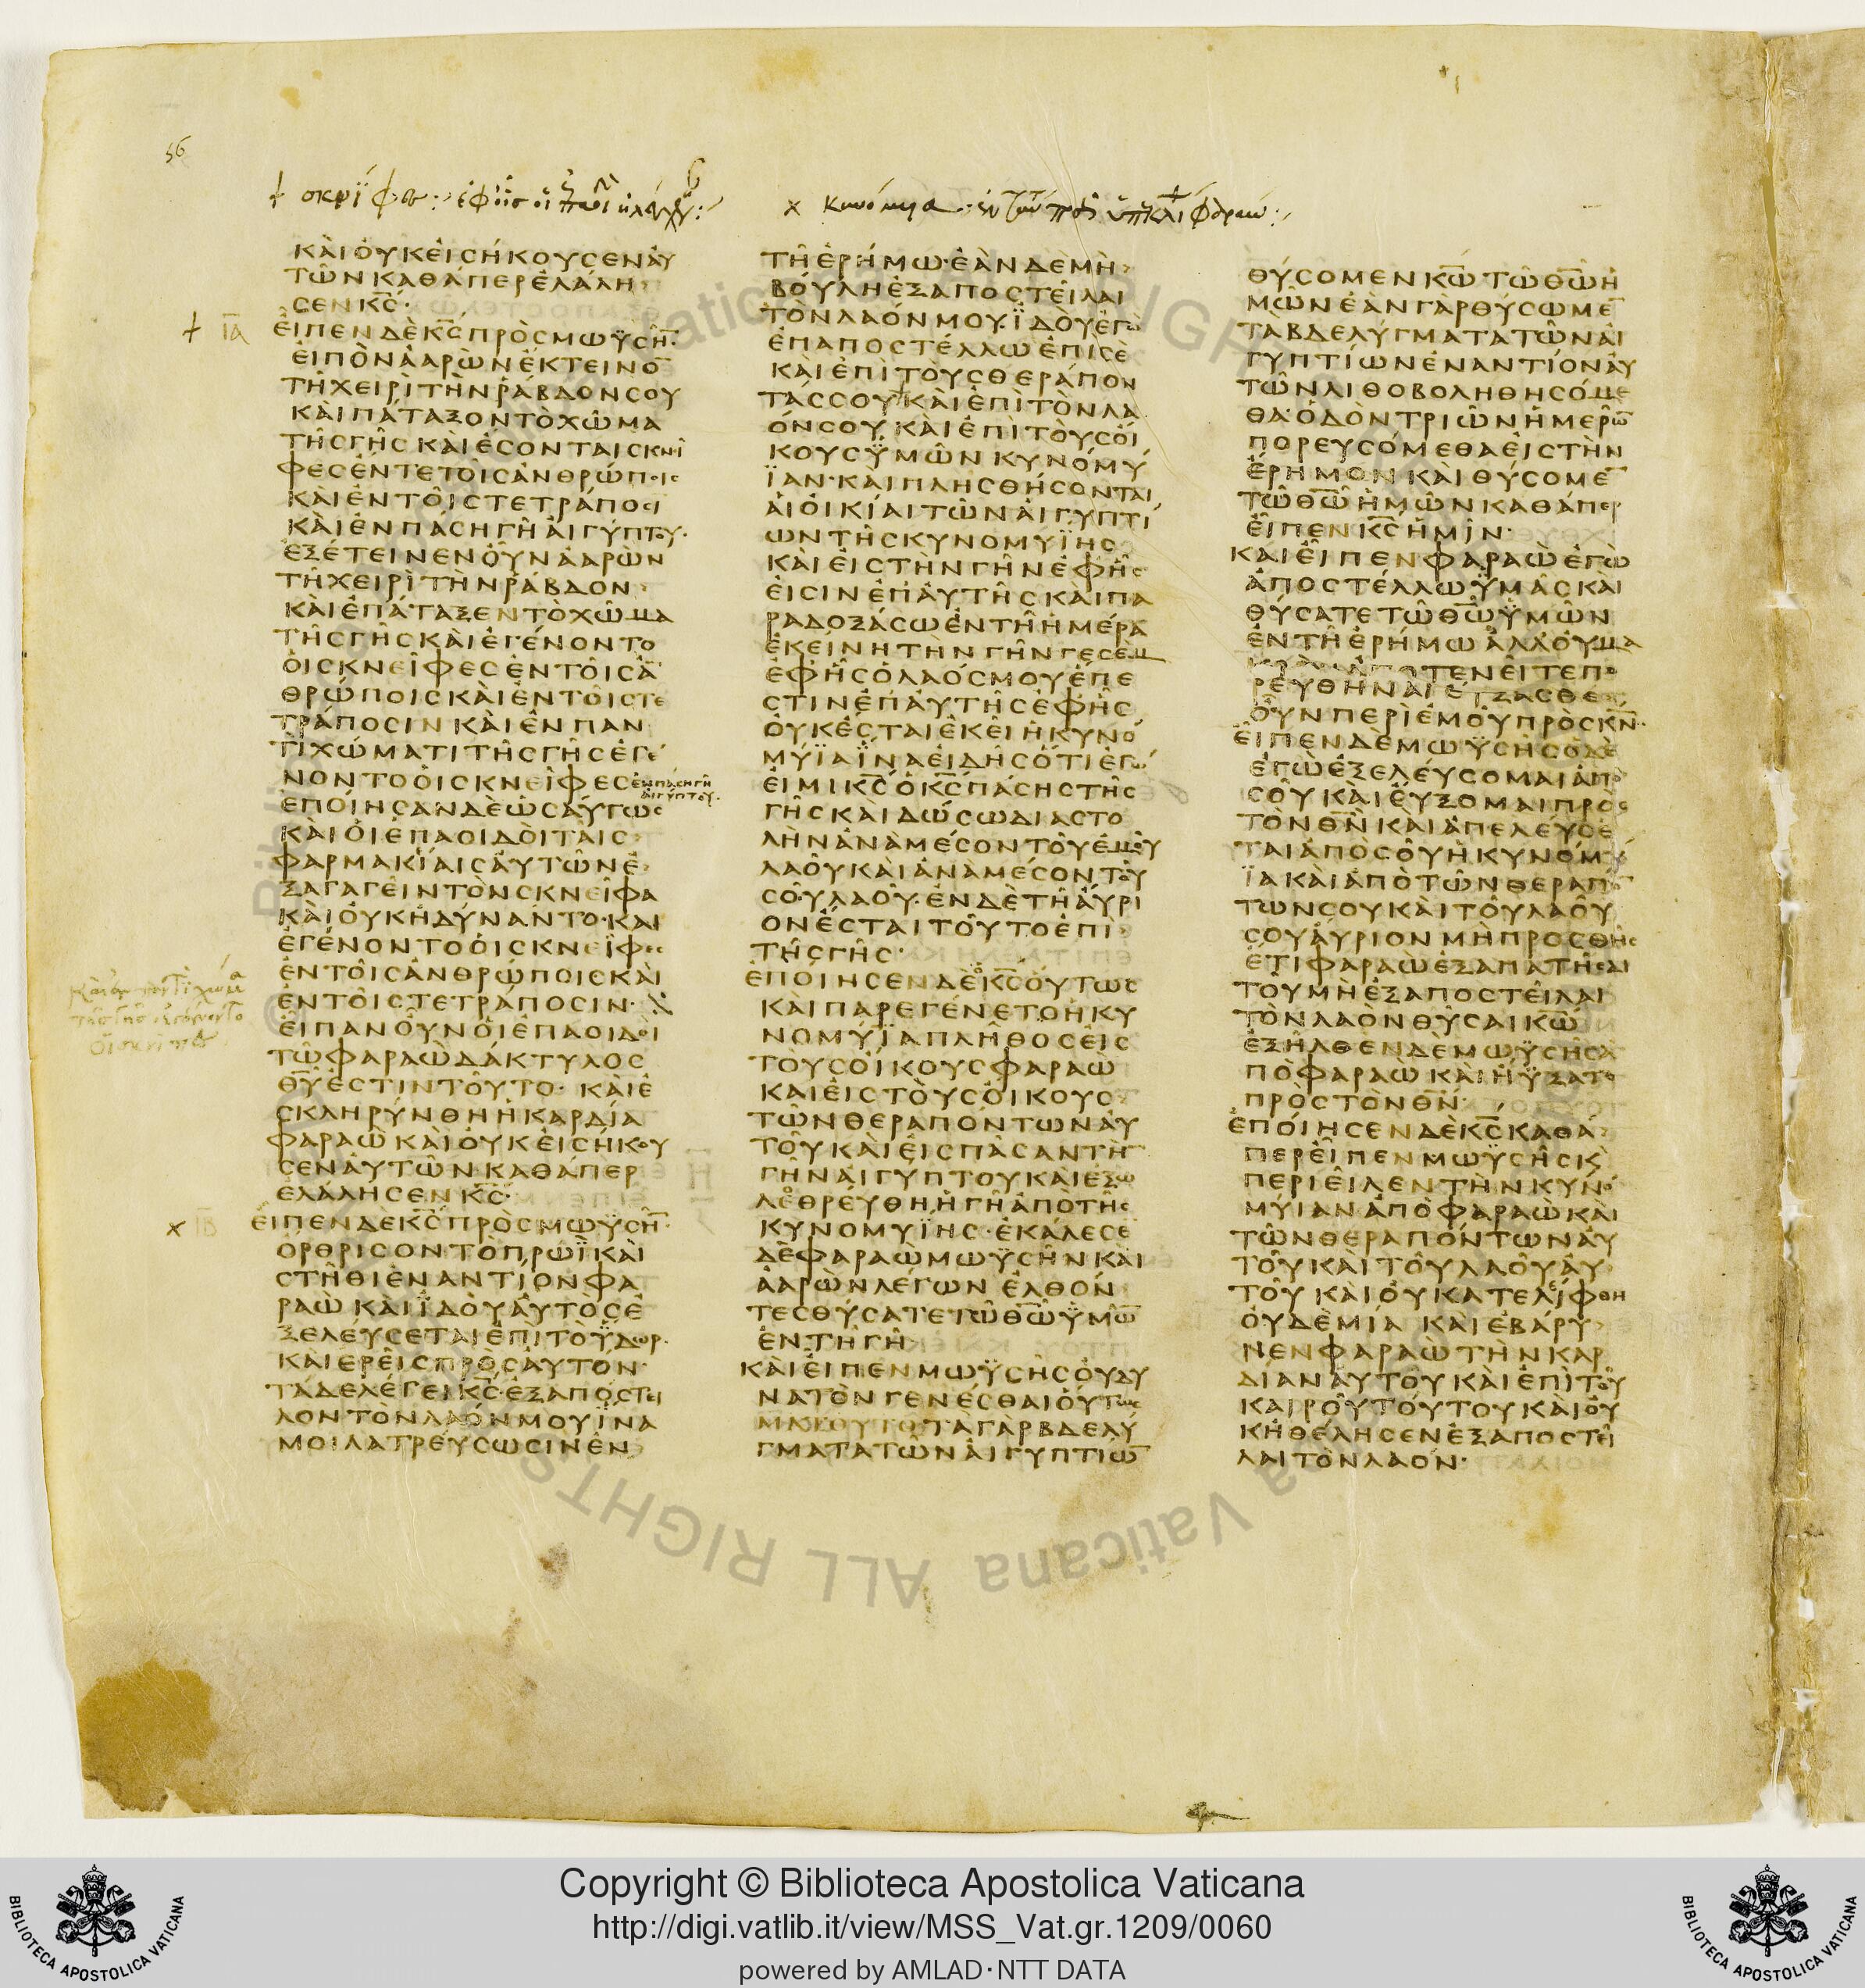 56
ΚΑΙΟΥΚΕΙΣΗΚΟΥΣΕΝΑΥ
ΤΩΝΚΑΘΑΠΕΡΕΛΑΛΗ
ΣΕΝΚΣ·
ΙΑ ΕΙΠΕΝΔΕΚΣΠΡΟΣΜΩΫΣΗ̅·
ΕΙΠΟΝΑΑΡΩΝΕΚΤΕΙΝΟ̅
ΤΗΧΕΙΡΙΤΗΝΡΑΒΔΟΝΣΟΥ
ΚΑΙΠΑΤΑΞΟΝΤΟΧΩΜΑ
ΤΗΣΓΗΣΚΑΙΕΣΟΝΤΑΙΣΚΝΙ
ΦΕΣΕΝΤΕΤΟΙΣΑΝΘΡΩΠΟΙΣ
ΚΑΙΕΝΤΟΙΣΤΕΤΡΑΠΟΣΙ
ΚΑΙΕΝΠΑΣΗΓΗΑΙΓΥΠΤΟΥ·
ΕΞΕΤΕΙΝΕΝΟΥΝΑΑΡΩΝ
ΤΗΧΕΙΡΙΤΗΝΡΑΒΔΟΝ
ΚΑΙΕΠΑΤΑΞΕΝΤΟΧΩΜΑ
ΤΗΣΓΗΣΚΑΙΕΓΕΝΟΝΤΟ
ΟΙΣΚΝΕΙΦΕΣΕΝΤΟΙΣΑ̅
ΘΡΩΠΟΙΣΚΑΙΕΝΤΟΙΣΤΕ
ΤΡΑΠΟΣΙΝΚΑΙΕΝΠΑΝ
ΤΙΧΩΜΑΤΙΤΗΣΓΗΣΕΓΕ
ΝΟΝΤΟΟΙΣΚΝΕΙΦΕΣΕΝΠΑΣΗΓΗ
ΑΙΓΥΠΤΟΥ·
ΕΠΟΙΗΣΑΝΔΕΩΣΑΥΤΩΣ
ΚΑΙΟΙΕΠΑΟΙΔΟΙΤΑΙΣ
ΦΑΡΜΑΚΙΑΙΣΑΥΤΩΝΕ
ΞΑΓΑΓΕΙΝΤΟΝΣΚΝΕΙΦΑ
ΚΑΙΟΥΚΗΔΥΝΑΝΤΟ·ΚΑΙ
ΕΓΕΝΟΝΤΟΟΙΣΚΝΕΙΦΕΣ
ΕΝΤΟΙΣΑΝΘΡΩΠΟΙΣΚΑΙ
ΕΝΤΟΙΣΤΕΤΡΑΠΟΣΙΝ·
ΕΙΠΑΝΟΥΝΟΙΕΠΑΟΙΔΟΙ
ΤΩΦΑΡΑΩΔΑΚΤΥΛΟΣ
ΘΥΕΣΤΙΝΤΟΥΤΟ·ΚΑΙΕ
ΣΚΛΗΡΥΝΘΗΗΚΑΡΔΙΑ
ΦΑΡΑΩΚΑΙΟΥΚΕΙΣΗΚΟΥ
ΣΕΝΑΥΤΩΝΚΑΘΑΠΕΡ
ΕΛΑΛΗΣΕΝΚΣ·
ΙΒ ΕΙΠΕΝΔΕΚΣΠΡΟΣΜΩΫΣΗ̅·
ΟΡΘΡΙΣΟΝΤΟΠΡΩΪΚΑΙ
ΣΤΗΘΙΕΝΑΝΤΙΟΝΦΑ
ΡΑΩΚΑΙΪΔΟΥΑΥΤΟΣΕ
ΞΕΛΕΥΣΕΤΑΙΕΠΙΤΟΫΔΩΡ·
ΚΑΙΕΡΕΙΣΠΡΟΣΑΥΤΟΝ·
ΤΑΔΕΛΕΓΕΙΚΣ·ΕΞΑΠΟΣΤΕΙ
ΛΟΝΤΟΝΛΑΟΝΜΟΥΪΝΑ
ΜΟΙΛΑΤΡΕΥΣΩΣΙΝΕΝ
ΤΗΕΡΗΜΩ·ΕΑΝΔΕΜΗ
ΒΟΥΛΗΕΞΑΠΟΣΤΕΙΛΑΙ
ΤΟΝΛΑΟΝΜΟΥ·ΪΔΟΥΕΓΩ
ΕΠΑΠΟΣΤΕΛΛΩΕΠΙΣΕ
ΚΑΙΕΠΙΤΟΥΣΘΕΡΑΠΟΝ
ΤΑΣΣΟΥΚΑΙΕΠΙΤΟΝΛΑ
ΟΝΣΟΥΚΑΙΕΠΙΤΟΥΣΟΙ
ΚΟΥΣΫΜΩΝΚΥΝΟΜΥ
ΪΑΝ·ΚΑΙΠΛΗΣΘΗΣΟΝΤΑΙ
ΑΙΟΙΚΙΑΙΤΩΝΑΙΓΥΠΤΙ
ΩΝΤΗΣΚΥΝΟΜΥΪΗΣ
ΚΑΙΕΙΣΤΗΝΓΗΝΕΦΗΣ
ΕΙΣΙΝΕΠΑΥΤΗΣΚΑΙΠΑ
ΡΑΔΟΞΑΣΩΕΝΤΗΗΜΕΡΑ
ΕΚΕΙΝΗΤΗΝΓΗΝΓΕΣΕΜ
ΕΦΗΣΟΛΑΟΣΜΟΥΕΠΕ
ΣΤΙΝΕΠΑΥΤΗΣΕΦΗΣ
ΟΥΚΕΣΤΑΙΕΚΕΙΗΚΥΝΟ
ΜΥΪΑΪΝΑΕΙΔΗΣΟΤΙΕΓΩ
ΕΙΜΙΚΣΟΚΣΠΑΣΗΣΤΗΣ
ΓΗΣΚΑΙΔΩΣΩΔΙΑΣΤΟ
ΛΗΝΑΝΑΜΕΣΟΝΤΟΥΕΜΟΥ
ΛΑΟΥΚΑΙΑΝΑΜΕΣΟΝΤΟΥ
ΣΟΥΛΑΟΥ·ΕΝΔΕΤΗΑΥΡΙ
ΟΝΕΣΤΑΙΤΟΥΤΟΕΠΙ
ΤΗΣΓΗΣ·
ΕΠΟΙΗΣΕΝΔΕΟΚΣΟΥΤΩΣ
ΚΑΙΠΑΡΕΓΕΝΕΤΟΗΚΥ
ΝΟΜΥΪΑΠΛΗΘΟΣΕΙΣ
ΤΟΥΣΟΙΚΟΥΣΦΑΡΑΩ
ΚΑΙΕΙΣΤΟΥΣΟΙΚΟΥΣ
ΤΩΝΘΕΡΑΠΟΝΤΩΝΑΥ
ΤΟΥΚΑΙΕΙΣΠΑΣΑΝΤΗ̅
ΓΗΝΑΙΓΥΠΤΟΥΚΑΙΕΞΩ
ΛΕΘΡΕΥΘΗΗΓΗΑΠΟΤΗΣ
ΚΥΝΟΜΥΪΗΣ·ΕΚΑΛΕΣΕ
ΔΕΦΑΡΑΩΜΩΫΣΗΝΚΑΙ
ΑΑΡΩΝΛΕΓΩΝΕΛΘΟΝ
ΤΕΣΘΥΣΑΤΕΤΩΘΩΫΜΩ̅
ΕΝΤΗΓΗ·
ΚΑΙΕΙΠΕΝΜΩΫΣΗΣΟΥΔΥ
ΝΑΤΟΝΓΕΝΕΣΘΑΙΟΥΤΩΣ
ΤΑΓΑΡΒΔΕΛΥ
ΓΜΑΤΑΤΩΝΑΙΓΥΠΤΙΩ̅
ΘΥΣΟΜΕΝΚΩΤΩΘΩΗ
ΜΩΝΕΑΝΓΑΡΘΥΣΩΜΕ̅
ΤΑΒΔΕΛΥΓΜΑΤΑΤΩΝΑΙ
ΓΥΠΤΙΩΝΕΝΑΝΤΙΟΝΑΥ
ΤΩΝΛΙΘΟΒΟΛΗΘΗΣΟΜΕ
ΘΑ·ΟΔΟΝΤΡΙΩΝΗΜΕΡΩ̅
ΠΟΡΕΥΣΟΜΕΘΑΕΙΣΤΗΝ
ΕΡΗΜΟΝΚΑΙΘΥΣΟΜΕ̅
ΤΩΘΩΗΜΩΝΚΑΘΑΠΕΡ
ΕΙΠΕΝΚΣΗΜΙΝ·
ΚΑΙΕΙΠΕΝΦΑΡΑΩΕΓΩ
ΑΠΟΣΤΕΛΛΩΫΜΑΣΚΑΙ
ΘΥΣΑΤΕΤΩΘΩΫΜΩΝ
ΕΝΤΗΕΡΗΜΩΑΛΛΟΥΜΑ
ΚΡΑΝΑΠΟΤΕΝΕΙΤΕΠΟ
ΡΕΥΘΗΝΑΙΕΥΞΑΣΘΕ
ΟΥΝΠΕΡΙΕΜΟΥΠΡΟΣΚΝ·
ΕΙΠΕΝΔΕΜΩΫΣΗΣΟΔΕ
ΕΓΩΕΞΕΛΕΥΣΟΜΑΙΑΠΟ
ΣΟΥΚΑΙΕΥΞΟΜΑΙΠΡΟΣ
ΤΟΝΘΝΚΑΙΑΠΕΛΕΥΣΕ
ΤΑΙΑΠΟΣΟΥΗΚΥΝΟΜΥ
ΪΑΚΑΙΑΠΟΤΩΝΘΕΡΑΠΟ̅
ΤΩΝΣΟΥΚΑΙΤΟΥΛΑΟΥ
ΣΟΥΑΥΡΙΟΝΜΗΠΡΟΣΘΗΣ
ΕΤΙΦΑΡΑΩΕΞΑΠΑΤΗΣΑΙ
ΤΟΥΜΗΕΞΑΠΟΣΤΕΙΛΑΙ
ΤΟΝΛΑΟΝΘΥΣΑΙΚΩ
ΕΞΗΛΘΕΝΔΕΜΩΫΣΗΣΑ
ΠΟΦΑΡΑΩΚΑΙΗΫΞΑΤΟ
ΠΡΟΣΤΟΝΘΝ
ΕΠΟΙΗΣΕΝΔΕΚΣΚΑΘΑ
ΠΕΡΕΙΠΕΝΜΩΫΣΗΣΚ
ΠΕΡΙΕΙΛΕΝΤΗΝΚΥΝΟ
ΜΥΙΑΝΑΠΟΦΑΡΑΩΚΑΙ
ΤΩΝΘΕΡΑΠΟΝΤΩΝΑΥ
ΤΟΥΚΑΙΤΟΥΛΑΟΥΑΥ
ΤΟΥΚΑΙΟΥΚΑΤΕΛΙΦΘΗ
ΟΥΔΕΜΙΑΚΑΙΕΒΑΡΥ
ΝΕΝΦΑΡΑΩΤΗΝΚΑΡ
ΔΙΑΝΑΥΤΟΥΚΑΙΕΠΙΤΟΥ
ΚΑΙΡΟΥΤΟΥΤΟΥΚΑΙΟΥ
ΚΗΘΕΛΗΣΕΝΕΞΑΠΟΣΤΕΙ
ΛΑΙΤΟΝΛΑΟΝ·
Copyright © Biblioteca Apostolica Vaticana
http://digi.vatlib.it/view/MSS_Vat.gr.1209/0060
powered by AMLAD·NTT DATA
BIBLIOTECA APOSTOLICA VATICANA
BIBLIOTECA APOSTOLICA VATICANA